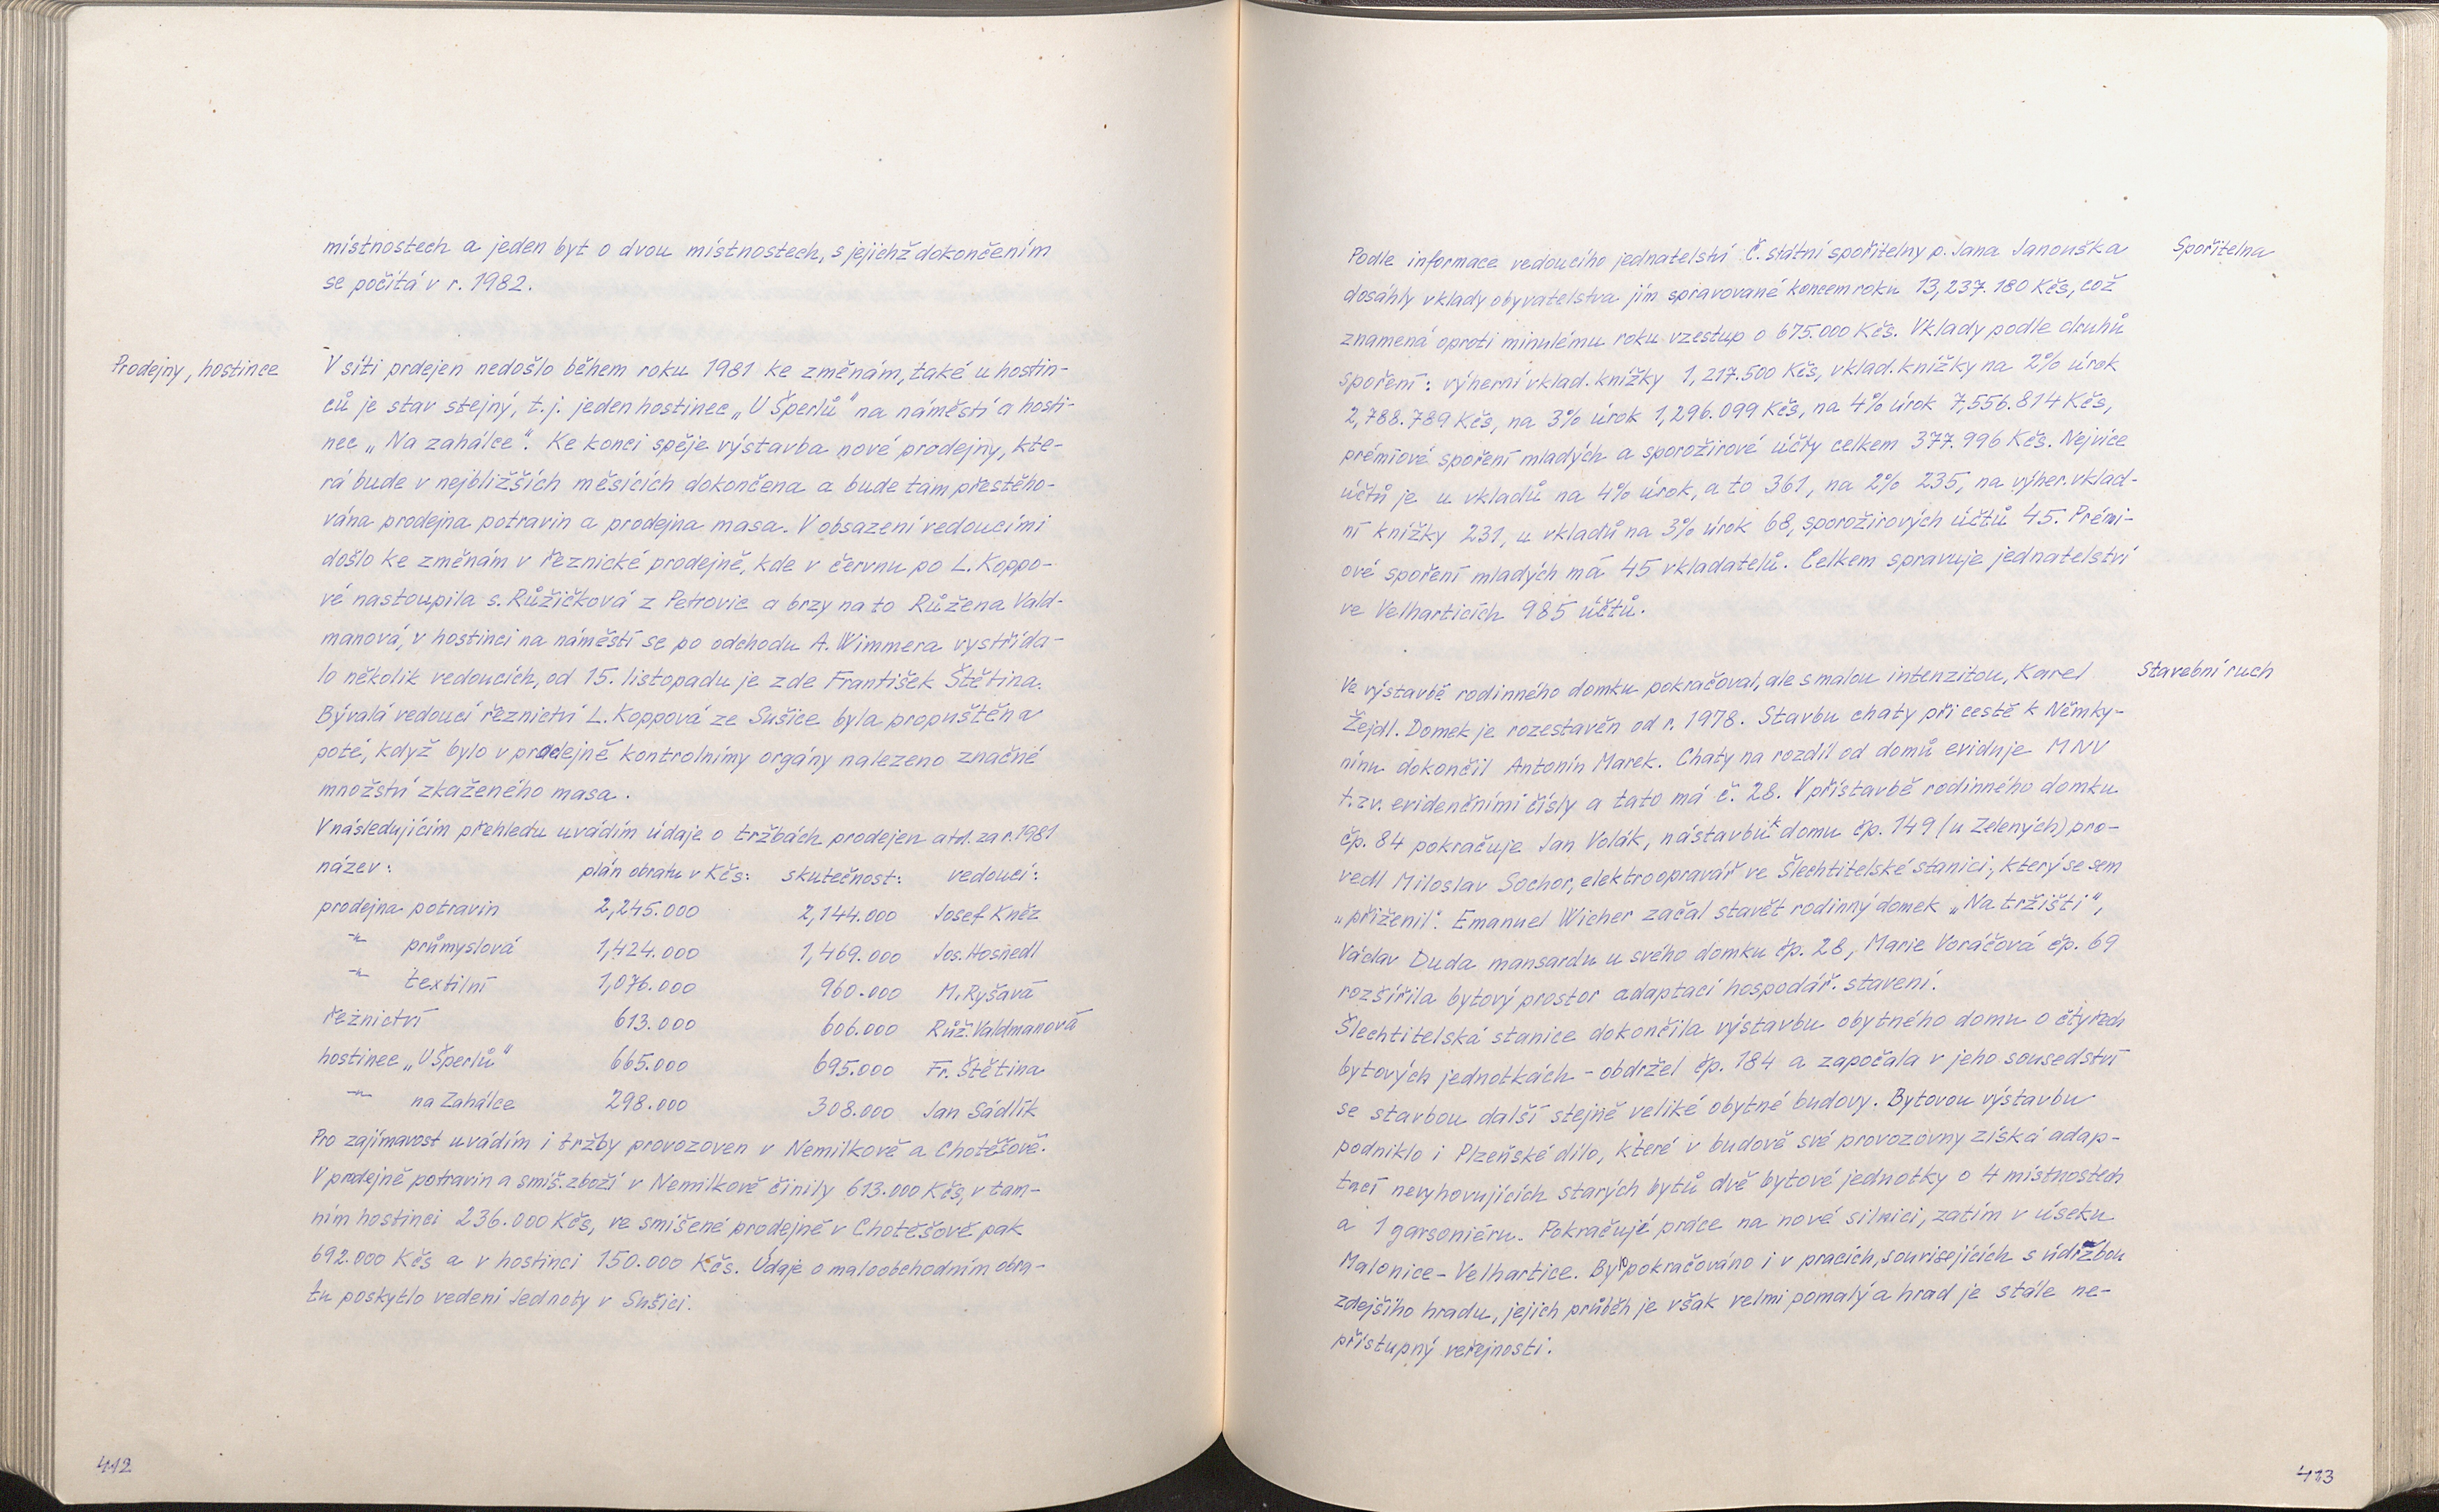 místnostech a jeden byt o dvou místnostech, s jejichž dokončením
se počítá v r. 1982.
Prodejny, hostince
V síti prdejen nedošlo během roku 1981 ke změnám, také u hostin-
ců je stav stejný, t.j. jeden hostinec „U Šperlů" na náměstí a hosti-
nec „Na zahálce". Ke konci spěje výstavba nové prodejny, kte-
rá bude v nejbližších měsících dokončena a bude tam přestěho-
vána prodejna potravin a prodejna masa. V obsazení vedoucími
došlo ke změnám v řeznické prodejně, kde v červnu po L. Koppo-
vé nastoupila s. Růžičková z Petrovic a brzy na to Růžena Vald-
manová, v hostinci na náměstí se po odchodu A. Wimmera vystřída-
lo několik vedoucích, od 15. listopadu je zde František Štětina.
Bývalá vedoucí řeznictví L. Koppová ze Sušice byla propuštěna
poté, když bylo v prodejně kontrolnímy orgány nalezeno značné
množství zkaženého masa.
V následujícím přehledu uvádím údaje o tržbách prodejen atd. za r. 1981
název: plán obratu v Kčs: skutečnost: vedoucí:
prodejna potravin 2,245.000 2,144.000 Josef Kněz
-"- průmyslová 1,424.000 1,469.000 Jos. Hosnedl
-"- textilní 1,076.000 960.000 M. Ryšavá
řeznictví 613.000 606.000 Růž. Valdmanová
hostinec „U Šperlů" 665.000 695.000 Fr. Štětina
-"- na Zahálce 298.000 308.000 Jan Sádlík
Pro zajímavost uvádím i tržby provozoven v Nemilkově a Chotěšově.
V prodejně potravin a smíš. zboží v Nemilkově činily 613.000 Kčs, v tam-
ním hostinci 236.000 Kčs, ve smíšené prodejně v Chotěšově pak
692.000 Kčs a v hostinci 150.000 Kčs. Údaje o maloobchodním obra-
tu poskytlo vedení Jednoty v Sušici.
412
Podle informace vedoucího jednatelství Č. státní spořitelny p. Jana Janouška
Spořitelna
dosáhly vklady obyvatelstva jím spravované koncem roku 13,237.180 Kčs, což
znamená oproti minulému roku vzestup o 675.000 Kčs. Vklady podle druhů
spoření: výherní vklad. knížky 1,217.500 Kčs, vklad. knížky na 2% úrok
2,788.789 Kčs, na 3% úrok 1,296.099 Kčs, na 4% úrok 7,556.814 Kčs,
prémiové spoření mladých a sporožirové účty celkem 377.996 Kčs. Nejvíce
účtů je u vkladů na 4% úrok, a to 361, na 2% 235, na výher. vklad-
ní knížky 231, u vkladů na 3% úrok 68, sporožirových účtů 45. Prémi-
ové spoření mladých má 45 vkladatelů. Celkem spravuje jednatelství
ve Velharticích 985 účtů.
Ve výstavbě rodinného domku pokračoval, ale s malou intenzitou, Karel
Stavební ruch
Žejdl. Domek je rozestavěn od r. 1978. Stavbu chaty při cestě k Němky-
nínu dokončil Antonín Marek. Chaty na rozdíl od domů eviduje MNV
t.zv. evidenčními čísly a tato má č. 28. V přístavbě rodinného domku
čp. 84 pokračuje Jan Volák, nástavbu k domu čp. 149 (u Zelených) pro-
vedl Miloslav Sochor, elektroopravář ve Šlechtitelské stanici, který se sem
„přiženil". Emanuel Wicher začal stavět rodinný domek „Na tržišti",
Václav Duda mansardu u svého domku čp. 28, Marie Voráčová čp. 69
rozšířila bytový prostor adaptací hospodář. stavení.
Šlechtitelská stanice dokončila výstavbu obytného domu o čtyřech
bytových jednotkách - obdržel čp. 184 a započala v jeho sousedství
se stavbou další stejně veliké obytné budovy. Bytovou výstavbu
podniklo i Plzeňské dílo, které v budově své provozovny získá adap-
tací nevyhovujících starých bytů dvě bytové jednotky o 4 místnostech
a 1 garsoniéru. Pokračují práce na nové silnici, zatím v úseku
Malonice - Velhartice. Bylo pokračováno i v pracích, souvisejících s údržbou
zdejšího hradu, jejich průběh je však velmi pomalý a hrad je stále ne-
přístupný veřejnosti.
413